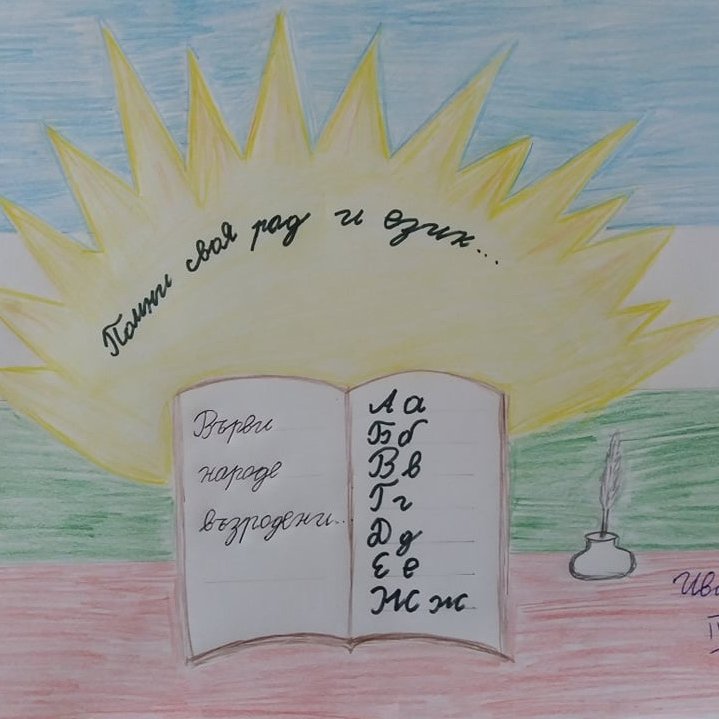 Помни своя род и език...
Върви
народе
възродени...
Аа
Бб
Вв
Гг
Дд
Ее
Жж